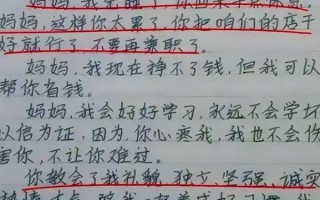 妈妈，这样你太累了，你把咱们的店干
好就行了，不要再兼职了。
妈妈，我现在挣不了钱，但我可以
帮你省钱。
妈妈，我会好好学习，永远不会学坏
以信为证，因为，你心疼我，我也不会伤
害你，不让你难过。
你教会了我礼貌、独立、坚强、诚实